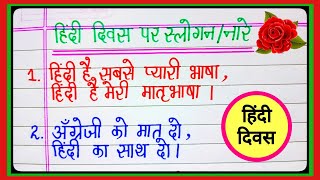 हिंदी दिवस पर स्लोगन/नारे
1. हिंदी है, सबसे प्यारी भाषा,
हिंदी है मेरी मातृभाषा ।
2. अँग्रेजी को मात दो,
हिंदी का साथ दो।
हिंदी
दिवस